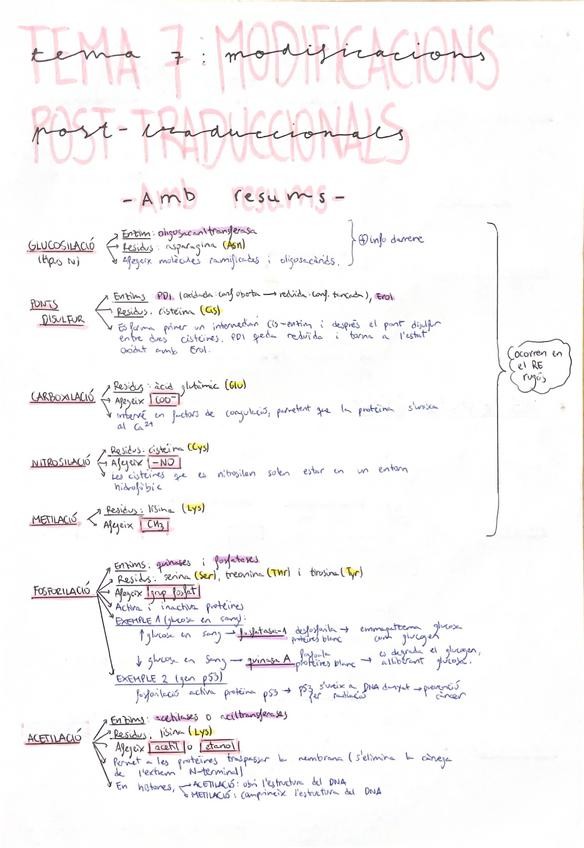 TEMA 7: MODIFICACIONS
tema 7: modificacions
POST-TRADUCCIONALS
post-traduccionals
- Amb resums -
GLUCOSILACIÓ
(tipus N)
Enzim: oligosacariltransferasa
Residus: asparagina (Asn)
Afegeix molècules ramificades i oligosacàrids.
+ info darrere
PONTS
DISULFUR
Enzims PDI (oxidada conf. oberta → reduida conf. tancada), Ero1
Residus: cisteïna (Cis)
Es forma primer un intermediari cis-enzim i després el pont disulfur
entre dues cisteïnes. PDI queda reduïda i torna a l'estat
oxidat amb Ero1.
CARBOXILACIÓ
Residus: àcid glutàmic (Glu)
Afegeix COO⁻
Intervé en factors de coagulació, permetent que la proteïna s'uneixi
al Ca²⁺
NITROSILACIÓ
Residus: cisteïna (Cys)
Afegeix -NO
Les cisteïnes que es nitrosilen solen estar en un entorn
hidrofòbic
METILACIÓ
Residus: lisina (Lys)
Afegeix CH₃
ocorren en
el RE
rugós
FOSFORILACIÓ
Enzims: quinases i fosfatases
Residus: serina (Ser), treonina (THr) i tirosina (Tyr)
Afegeix grup fosfat
Activa i inactiva proteïnes
EXEMPLE 1 (glucosa en sang):
↑ glucosa en sang → fosfatasa-1 desfosforila proteïnes blanc → emmagatzema glucosa com glucogen
↓ glucosa en sang → quinasa A fosforila proteïnes blanc → es degrada el glucogen, alliberant glucosa.
EXEMPLE 2 (gen p53)
fosforilació activa proteïna p53 → p53 s'uneix a DNA danyat per radiació → prevenció càncer
ACETILACIÓ
Enzims: acetilases o aciltransferases
Residus: lisina (Lys)
Afegeix acetil o etanol
Permet a les proteïnes traspassar la membrana (s'elimina la càrrega
de l'extrem N-terminal)
En histones, → ACETILACIÓ: obri l'estructura del DNA
METILACIÓ: comprimeix l'estructura del DNA